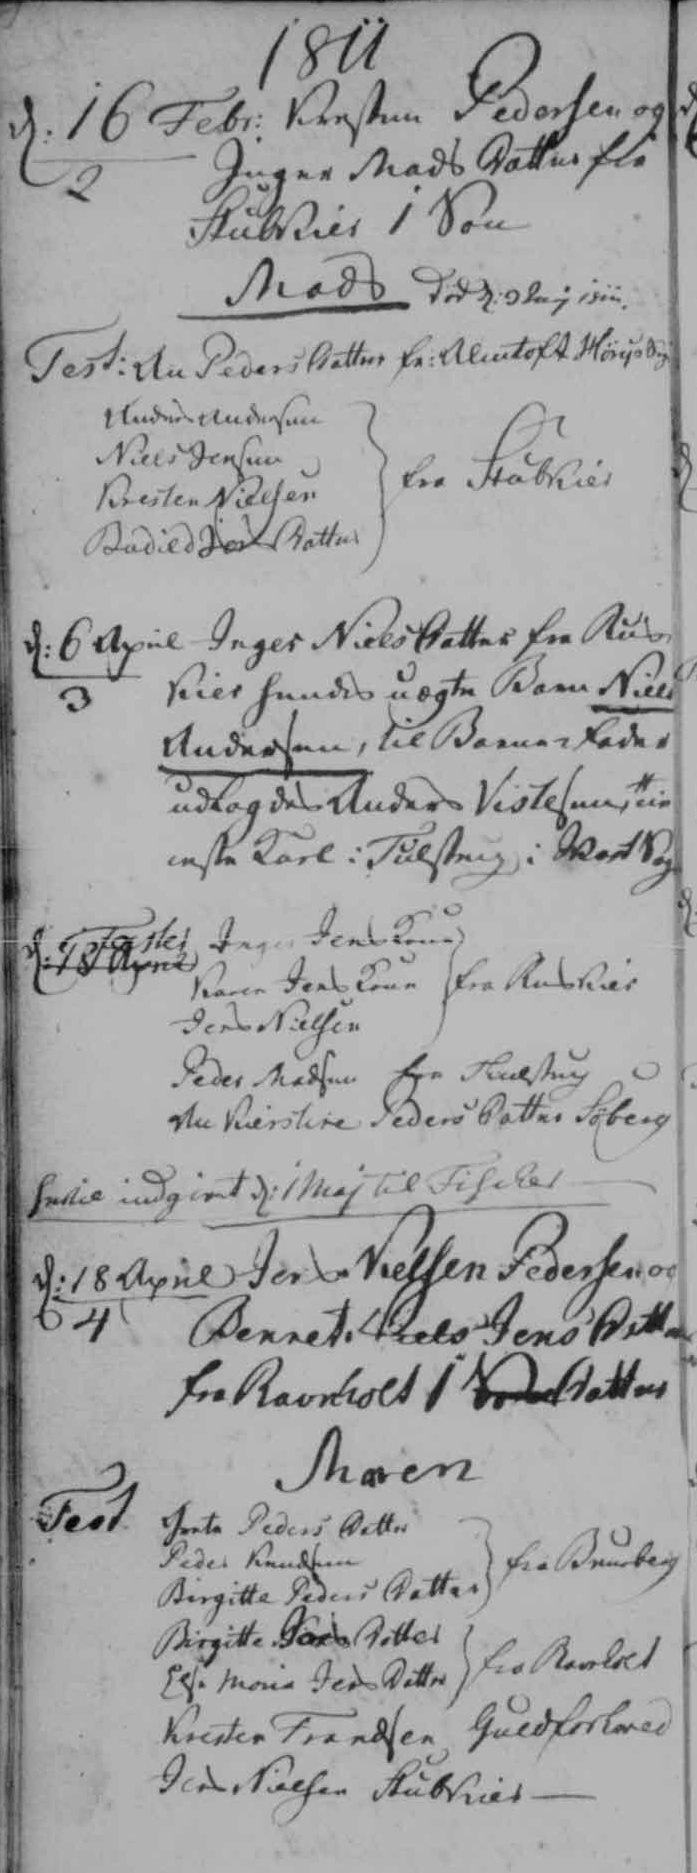 1811
d: 16 Febr: Kresten Pedersen og
2 Inger Mads Datter fra
Stubkier 1 Søn
Mads Død d: 9 Maj 1811.
Test: An Peders Datter fr: Almtoft
Anders Andersen
Niels Jensen
Kresten Nielsen
Bodild Jens Datter
fra Stubkier
d: 6 April Inger Niels Datter fra Rus
3 kier hendes uægte Barn Niels
Andersen, til Barne Fader
udlagdes Anders Vistesen
Karl i Tulstrup i
Testes
d: 18 April
Inger Jens Kone
Karen Jens Kone
Jens Nielsen
fra Ruskier
Peder Madsen fra Thulstrup
An Kierstine Peders Datter Søberg
indgivet d: 1 Maj til Fischer
d: 18 April Jens Nielsen Pedersen og
4 Bennet Niels Jens Datter
fra Ravnholt 1 Datter
Maren
Test Peders Datter
Peder Knudsen
Birgitte Peders Datter
fra Bruusberg
Birgitte Datter
Else Maria Jens Datter
fra Ravnholt
Kresten Frandsen Guldforhoved
Jens Nielsen Stubkier